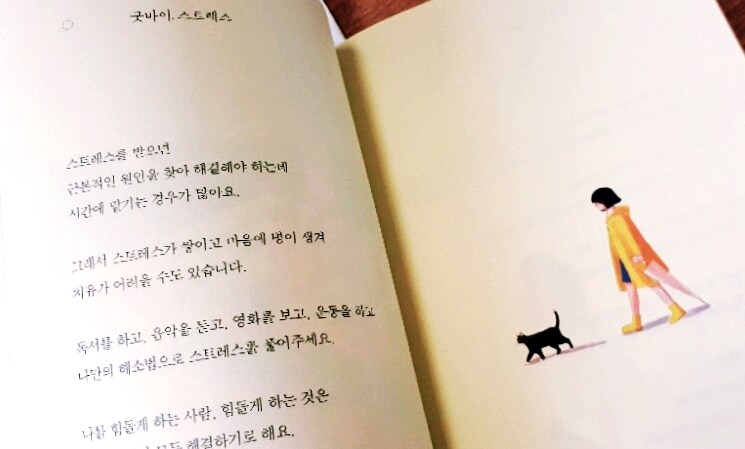 굿바이, 스트레스
스트레스를 받으면
근본적인 원인을 찾아 해결해야 하는데
시간에 맡기는 경우가 많아요.
그래서 스트레스가 쌓이고 마음에 병이 생겨
치유가 어려울 수도 있습니다.
독서를 하고, 음악을 듣고, 영화를 보고, 운동을 하고
나만의 해소법으로 스트레스를 풀어주세요.
나를 힘들게 하는 사람, 힘들게 하는 것은
모두 해결하기로 해요.